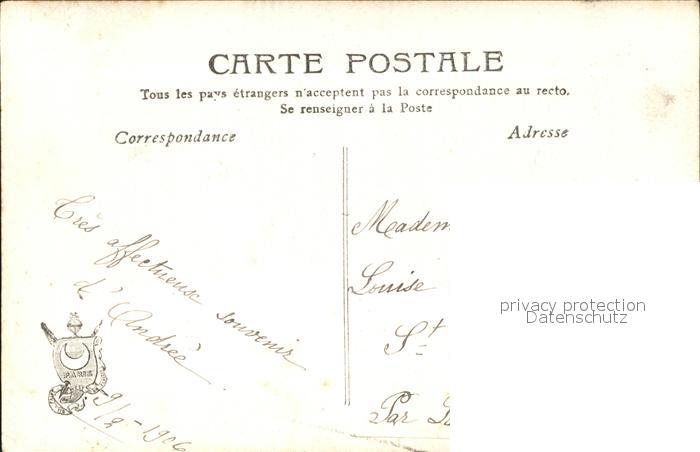 CARTE POSTALE
Tous les pays étrangers n'acceptent pas la correspondance au recto.
Se renseigner à la Poste
Correspondance
Adresse
Très affectueux souvenir
d'Andrée
PARIS
1906
Madem
Louise
St
Par
privacy protection
Datenschutz